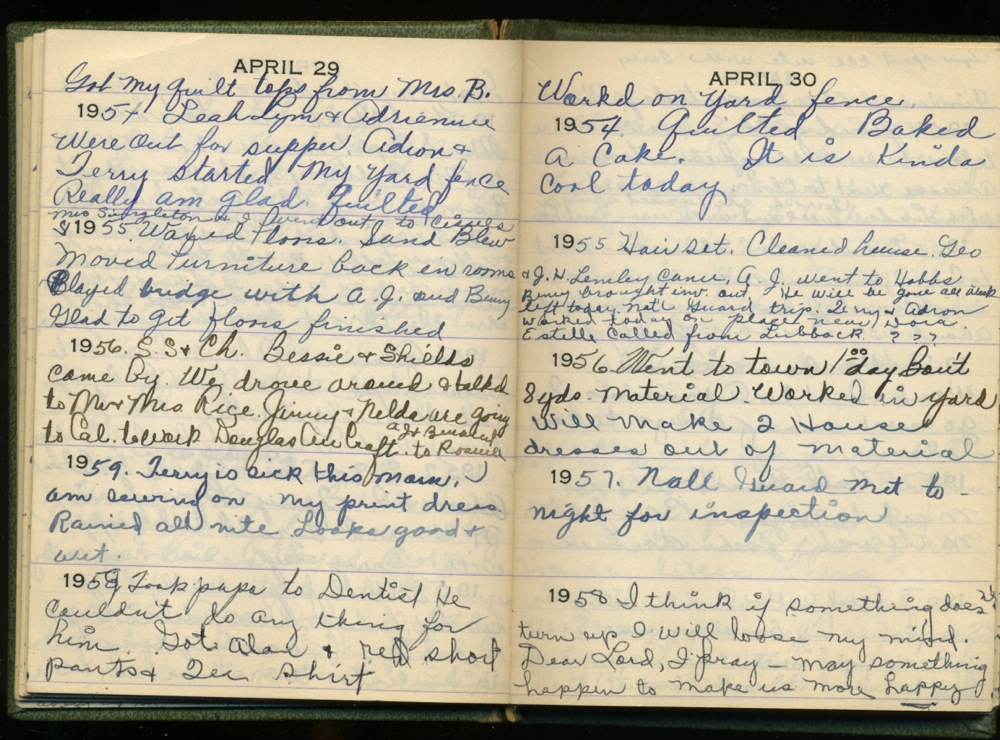 APRIL 29
Got my quilt tops from Mrs. B.
1954 Leahlym & Adrienne
were out for supper. Adron &
Terry started my yard fence
Really am glad. Quilted
Mrs Singleton & I went out to
& 1955. Waxed Floors. Sand Blew
moved furniture back in rooms
Played bridge with A.J. and Benny
Glad to get floors finished
1956. S.S & Ch. Bessie & Shields
came by. We drove around & talked
to Mr & Mrs. Rice. Jimmy & Nelda are going
to Cal. to work Douglas Air Craft. A J & to Roswell
1959. Terry is sick this morn, I
am sewing on my print dress.
Rained all nite. Looks good &
wet.
1958 Took papa to Dentist He
couldn't do any thing for
him. Got Alan & red short
pants & Tee shirt
APRIL 30
Workd on yard fence.
1954 Quilted Baked
a cake. It is kinda
cool today
1955 Hair set. Cleaned house. Geo
& J. H. Lemley came, A. J. went to Hobbs
Benny brought inv. out. He will be gone all week
left today Natl Guard trip. Terry & Adron
worked road on place near Dora.
Estelle called from Lubbock. ? ? ?
1956 Went to town 1 00 day Bout
8 yds. material. Worked in yard
will make 2 House
dresses out of material
1957. Natl Guard met to-
night for inspection
1958 I think if something does nt
turn up I will loose my mind.
Dear Lord, I pray - may something
happen to make us more happy